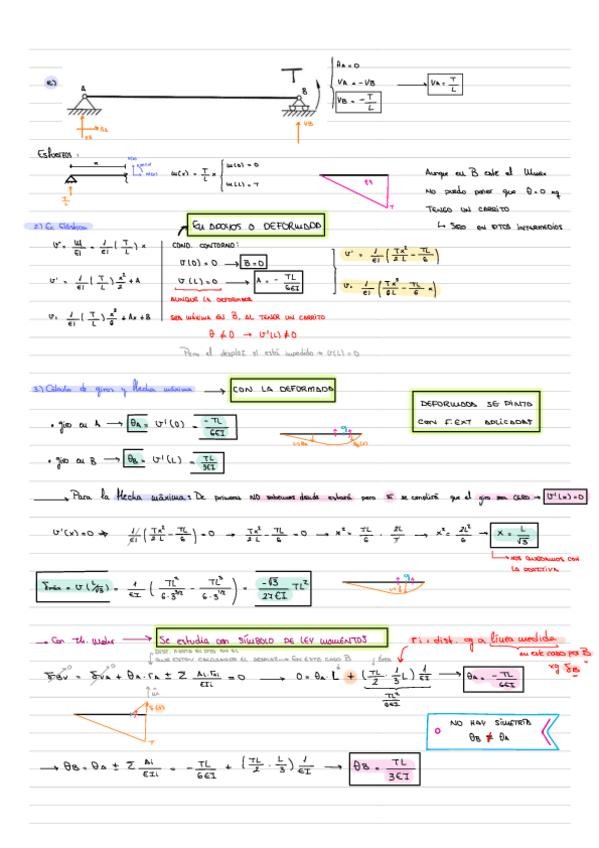 e)
A
B
T
HA = 0
VA = -VB
VB = -T/L
VA = T/L
VB
Esfuerzos:
x
M(x) = T/L x
M(0) = 0
M(L) = T
T
Aunque en B esté el Mmax
No puedo poner que θ=0 xq
TENGO UN CARRITO
↳ SERÍA EN PTOS INTERMEDIOS
2) Ec Elástica
EN APOYOS O DEFORMADA
v'' = M/EI = 1/EI (T/L) x
v' = 1/EI (T/L) x²/2 + A
v = 1/EI (T/L) x³/6 + Ax + B
COND. CONTORNO:
v(0) = 0 → B = 0
v(L) = 0 → A = -TL/6EI
AUNQUE LA DEFORMADA
SEA MÁXIMA EN B, AL TENER UN CARRITO
θ ≠ 0 → v'(L) ≠ 0
Pero el desplaz sí está impedido → v(L) = 0
v' = 1/EI (Tx²/2L - TL/6)
v = 1/EI (Tx³/6L - TL/6 x)
3) Cálculo de giros y flecha máxima → CON LA DEFORMADA
DEFORMADAS SE PINTA
CON F.EXT APLICADAS
• giro en A → θA = v'(0) = -TL/6EI
• giro en B → θB = v'(L) = TL/3EI
→ Para la flecha máxima: De primeras NO sabemos donde estará pero sí se cumplirá que el giro sea CERO → v'(x)=0
v'(x)=0 → 1/EI (Tx²/2L - TL/6) = 0 → Tx²/2L - TL/6 = 0 → x² = TL/6 · 2L/T → x² = 2L²/6 → x = L/√3
↳ NOS QUEDAMOS CON
LA POSITIVA
δmáx = v(L/√3) = 1/EI (TL²/6·3^3/2 - TL²/6·3^1/2) = -√3/27EI TL²
→ Con Th. Mohr → Se estudia con SÍMBOLO DE LEY MOMENTOS
ri: dist. cg a línea medida
en este caso por B
xq δB
DIST. DESDE EL PTO EN EL
QUE ESTOY CALCULANDO EL DESPLAZ → EN ESTE CASO B
Área
δBV = δVA + θA·rA ± Σ Ai·ri/EIi = 0 → 0 = θA·L + (TL/2 · 1/3 L) 1/EI → θA = -TL/6EI
TL²/6EI
T
NO HAY SIMETRÍA
θB ≠ θA
→ θB = θA ± Σ Ai/EIi = -TL/6EI + (TL/2 · L/3) 1/EI → θB = TL/3EI